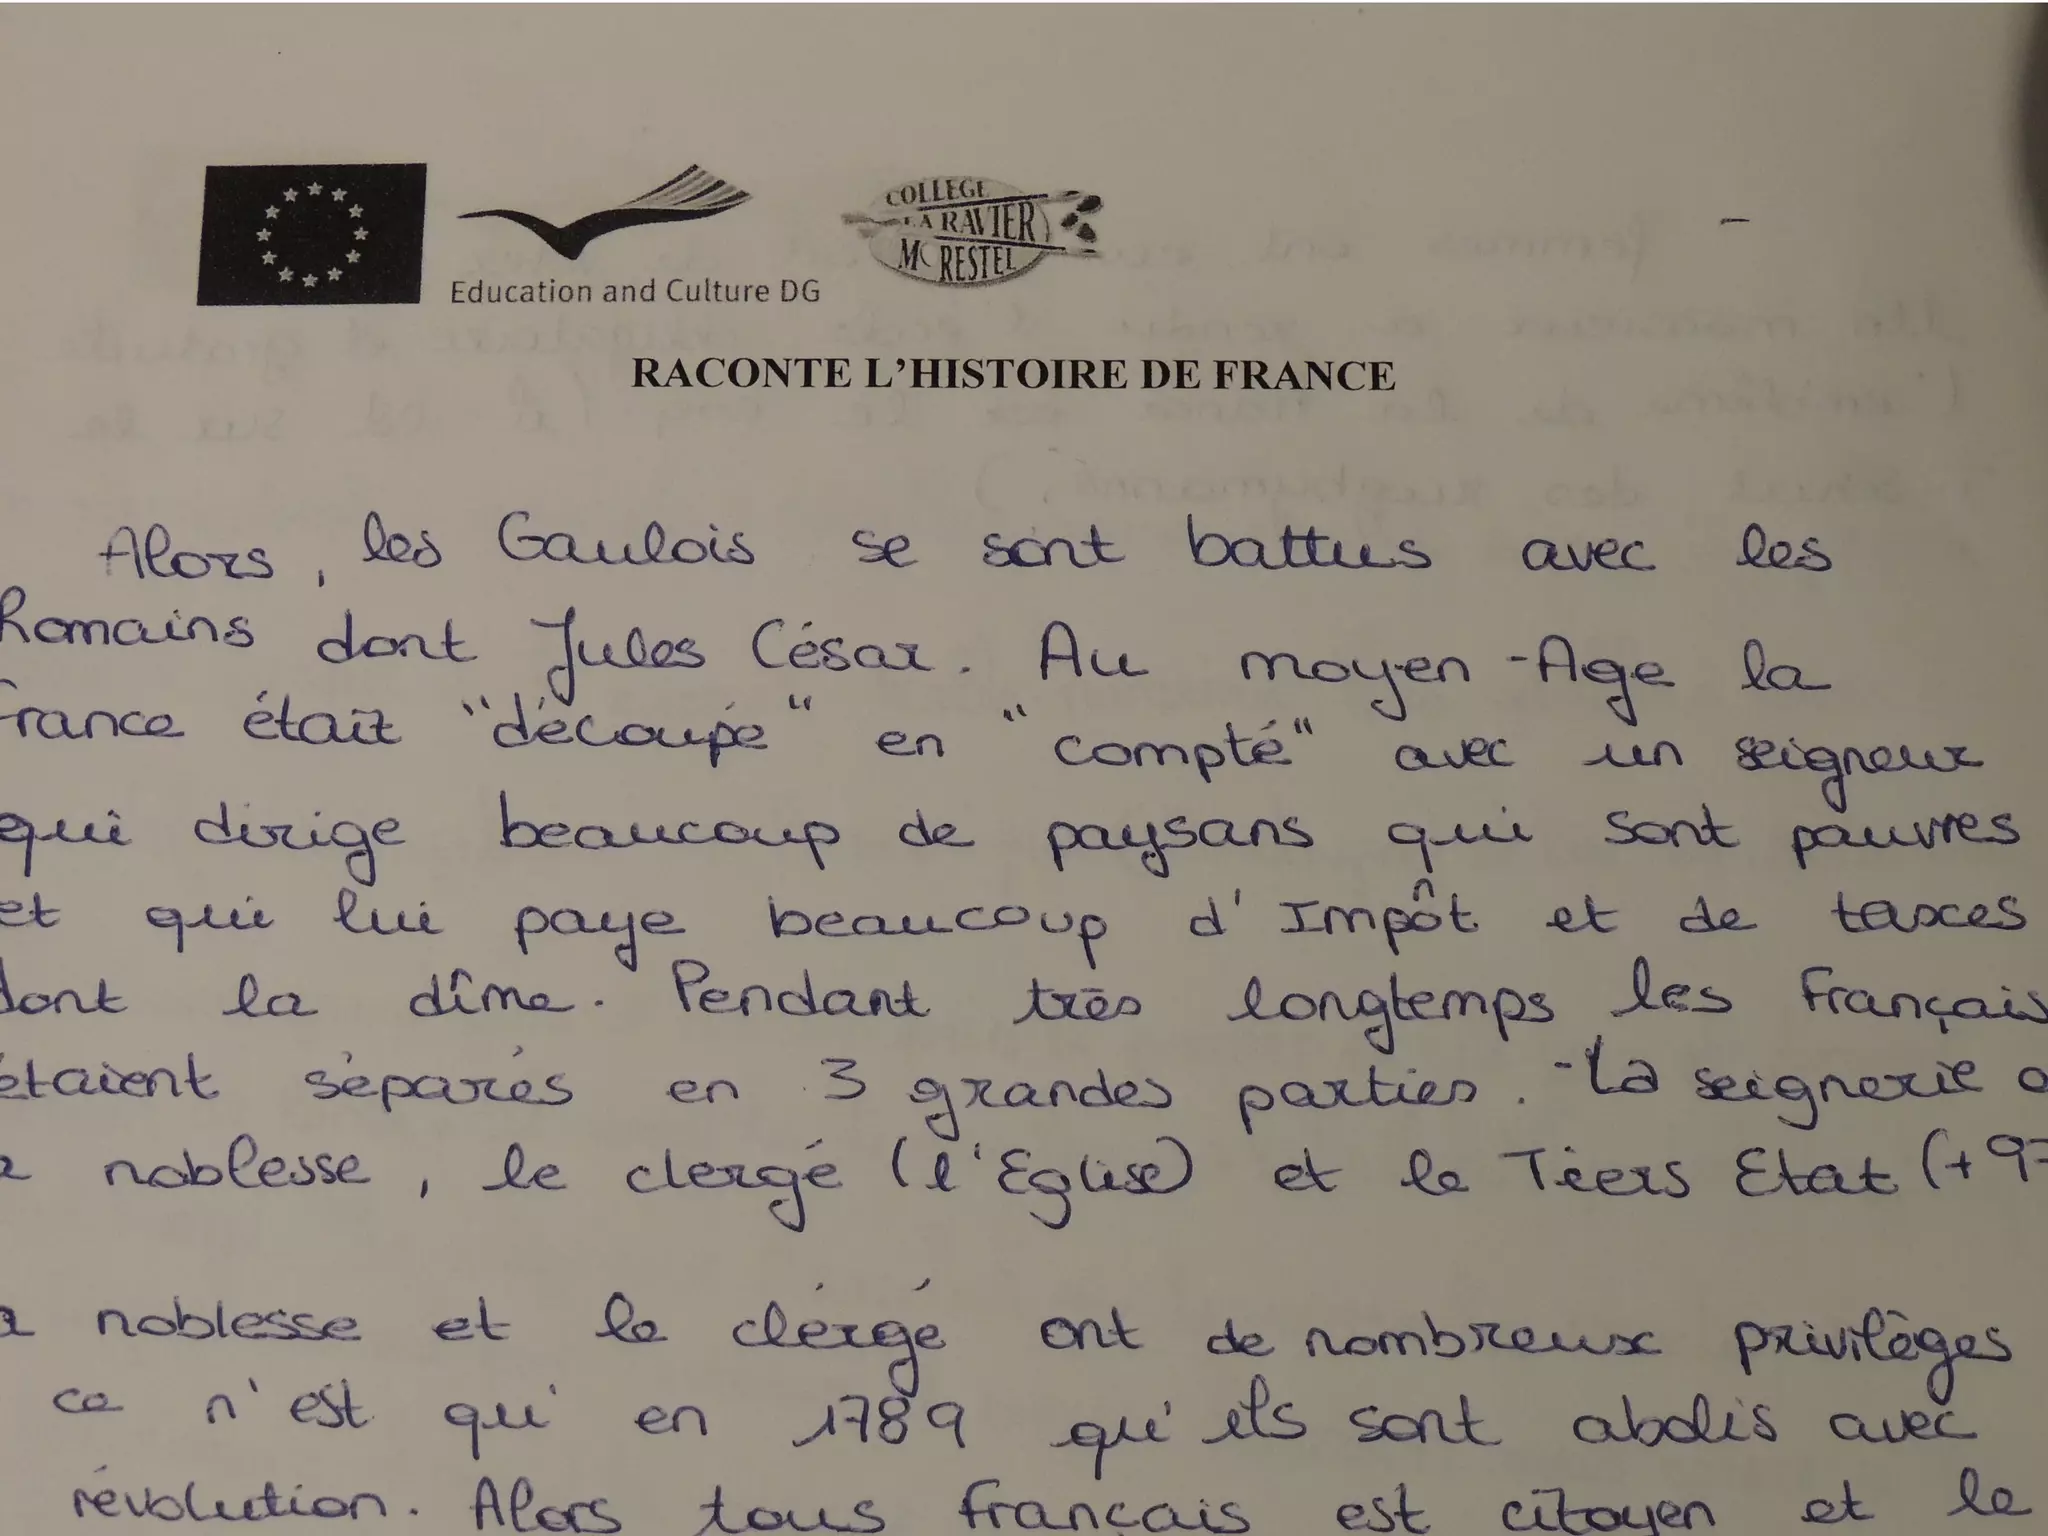 COLLEGE
LA RAVIER
MORESTEL
Education and Culture DG
RACONTE L'HISTOIRE DE FRANCE
Alors, les Gaulois se sont battus avec les
Romains dont Jules César. Au moyen-Age la
France était "découpé" en "compté" avec un seigneur
qui dirige beaucoup de paysans qui sont pauvres
et qui lui paye beaucoup d'Impôt et de taxes
dont la dîme. Pendant très longtemps les Français
étaient séparés en 3 grandes parties. -La seignerie
noblesse, le clergé (l'Eglise) et le Tiers Etat (+97
noblesse et le clérgé ont de nombreux privilèges
ce n'est qu'en 1789 qu'ils sont abolis avec
révolution. Alors tous français est citoyen et le